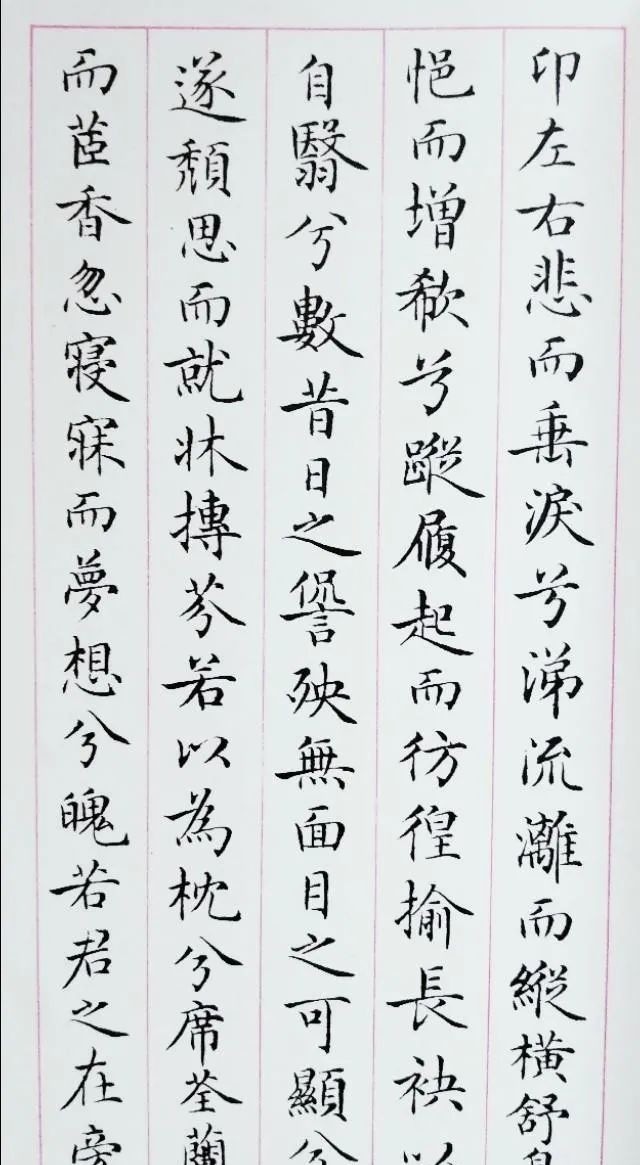 卬左右悲而垂淚兮涕流灕而縱橫舒息
悒而增欷兮蹝履起而彷徨揄長袂以
自翳兮數昔日之諐殃無面目之可顯兮
遂頹思而就牀摶芬若以為枕兮席荃蘭
而茝香忽寑寐而夢想兮魄若君之在旁